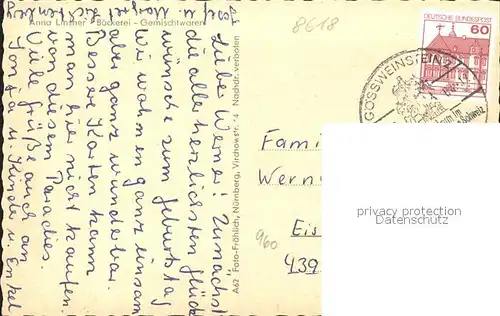 Anna Lintner - Bäckerei - Gemischtwaren
Liebe Werner! Zunächst
die allerherzlichsten Glück
wünsche zum Geburtstag
Wir wohnen ganz einsam
aber ganz wunderbar.
Bessere Karten kann
man hier nicht kaufen.
aus dem Paradies.
Viele Grüße auch an
Sonja u. Kinder u. Enkel
A62 Foto-Fröhlich, Nürnberg, Virchowstr. 14 Nachdr. verboten
8618
DEUTSCHE BUNDESPOST
60
GÖSSWEINSTEIN
Fami
Wern
Eis
439
960
privacy protection
www.oldthing.de